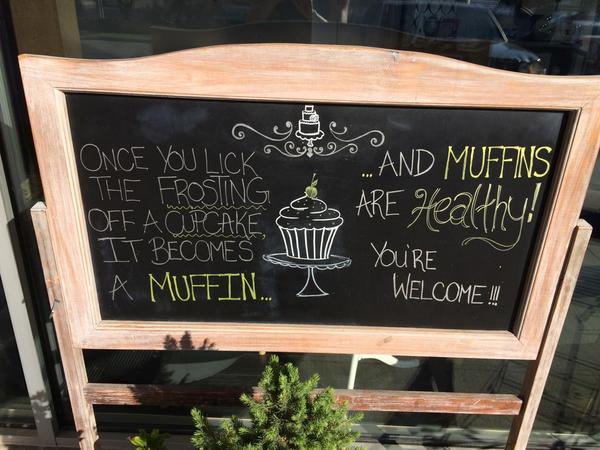 ONCE YOU LICK
THE FROSTING
OFF A CUPCAKE,
IT BECOMES
A MUFFIN...
...AND MUFFINS
ARE Healthy!
YOU'RE
WELCOME!!!